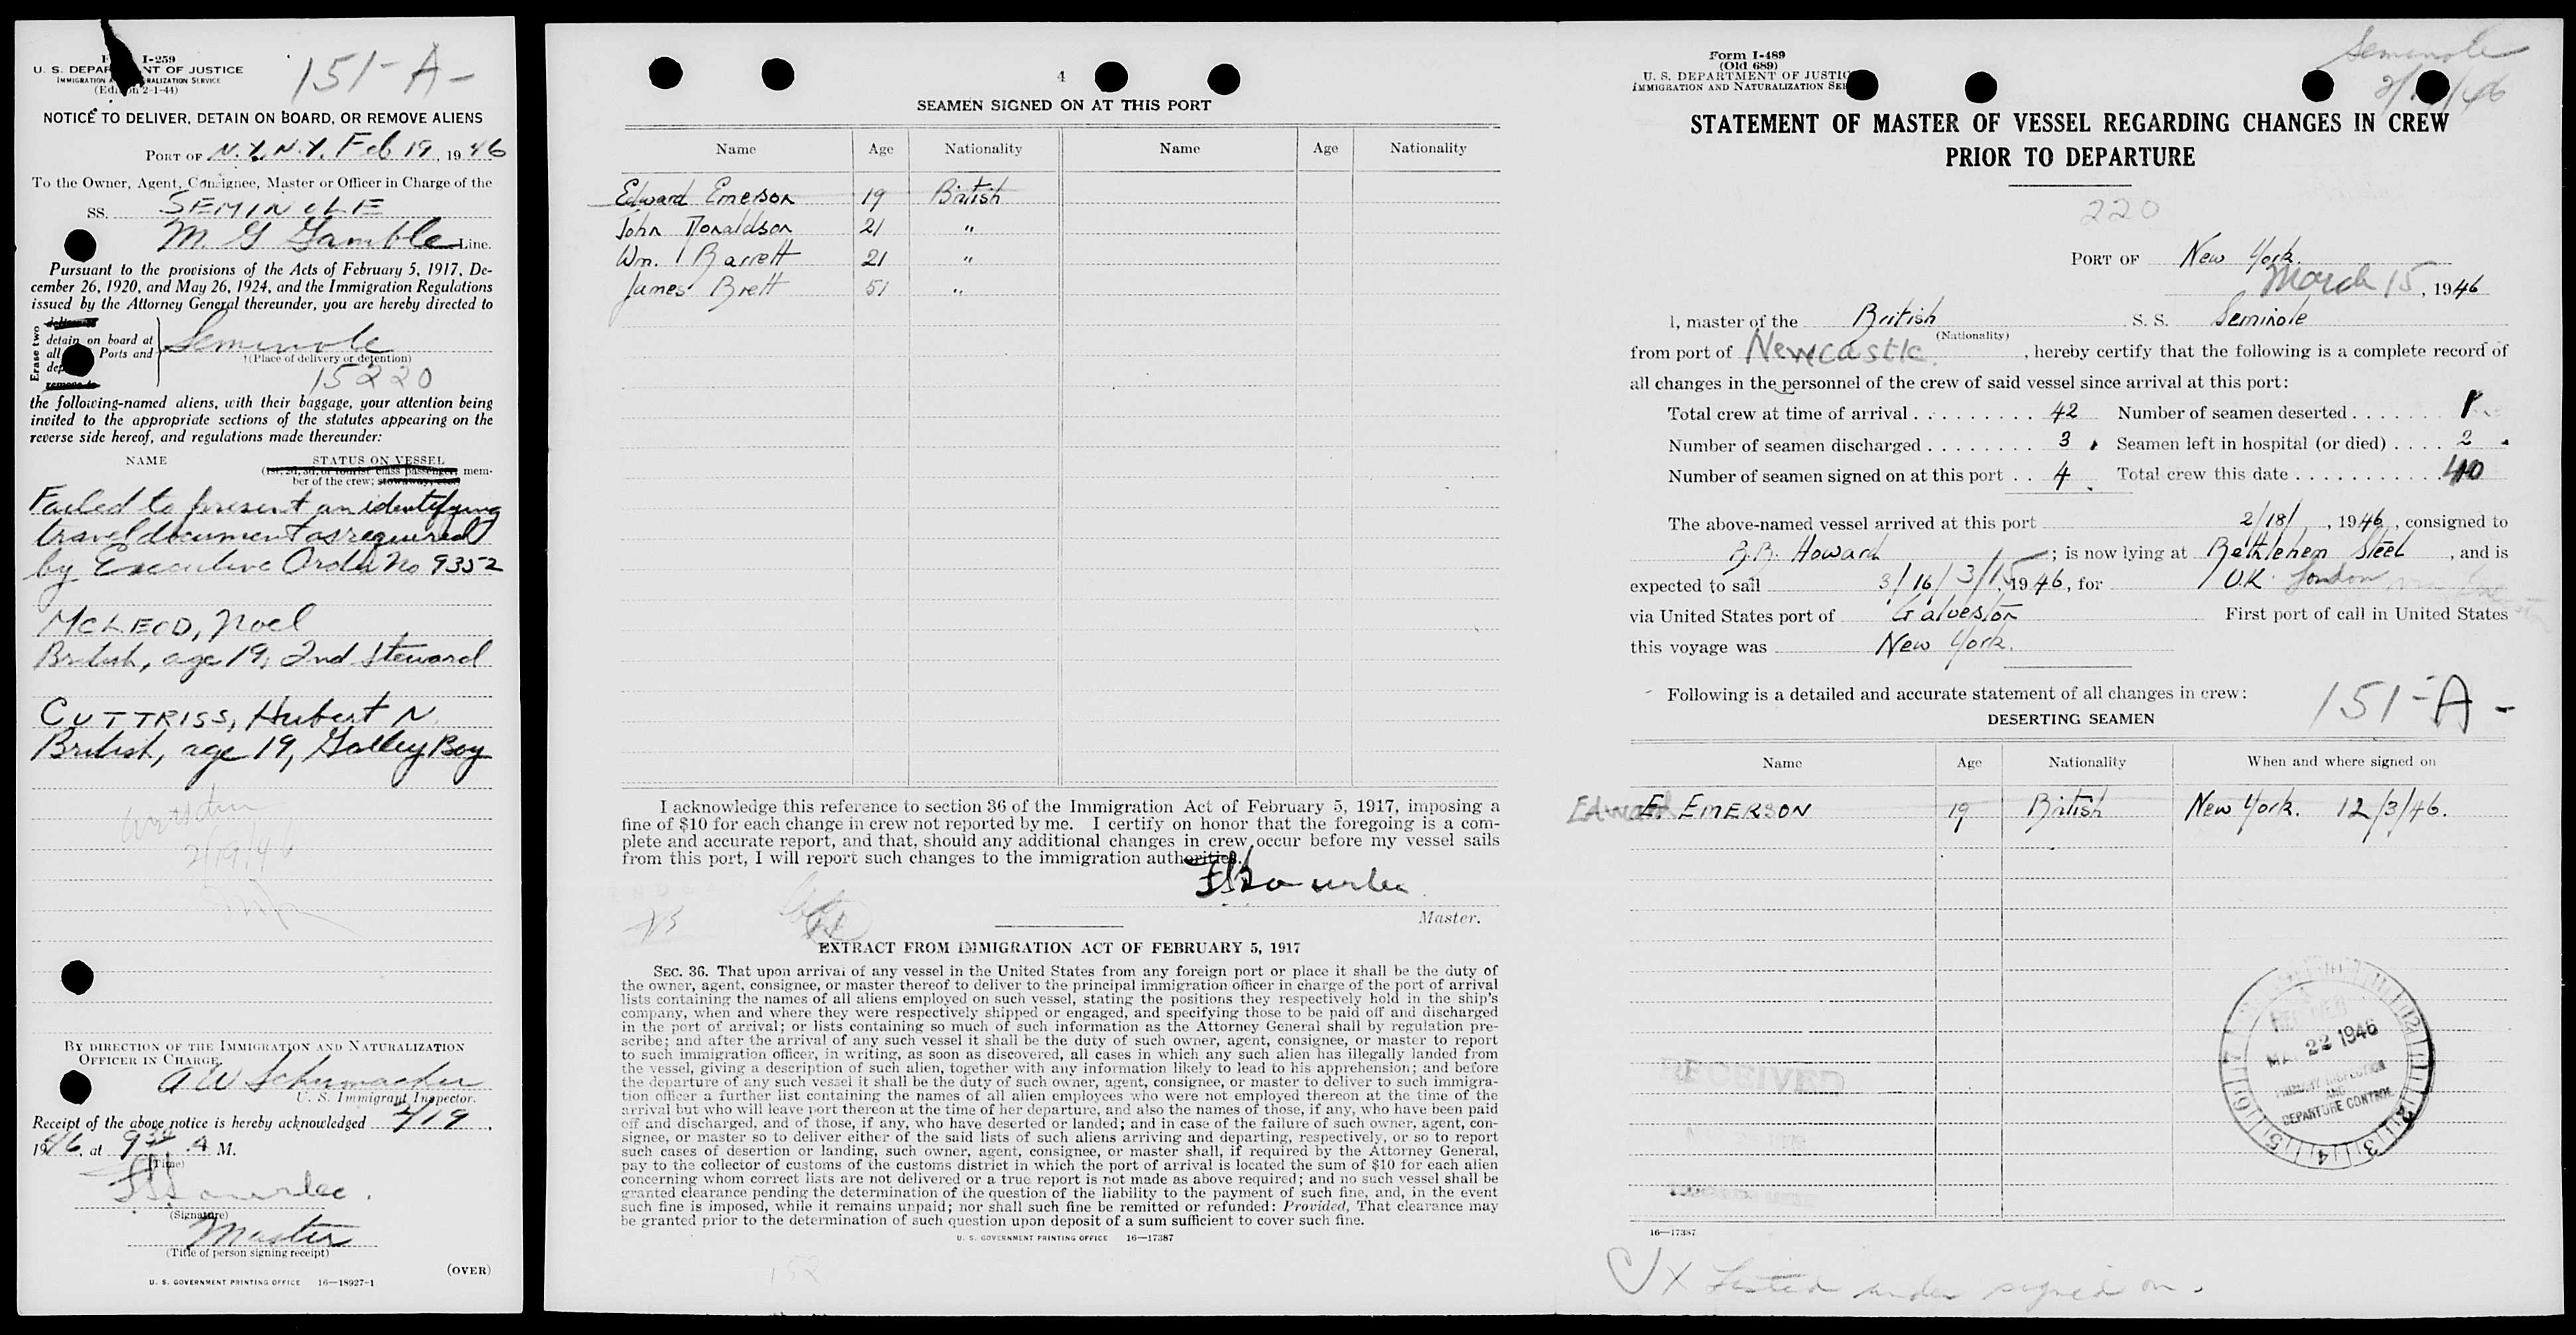 I-259
U. S. DEPARTMENT OF JUSTICE
IMMIGRATION NATURALIZATION SERVICE
(Edition 2-1-44)
151-A-
NOTICE TO DELIVER, DETAIN ON BOARD, OR REMOVE ALIENS
PORT OF N.Y., N.Y. Feb 19, 1946
To the Owner, Agent, Consignee, Master or Officer in Charge of the
SS. SEMINOLE
M G Gamble Line.
Pursuant to the provisions of the Acts of February 5, 1917, De-
cember 26, 1920, and May 26, 1924, and the Immigration Regulations
issued by the Attorney General thereunder, you are hereby directed to
Erase two
detain on board at
all Ports and
dep
remove to
Seminole
†(Place of delivery or detention)
15220
the following-named aliens, with their baggage, your attention being
invited to the appropriate sections of the statutes appearing on the
reverse side hereof, and regulations made thereunder:
NAME STATUS ON VESSEL
(1st, 2d, 3d, or tourist class passenger, mem-
ber of the crew; stowaway, etc.)
Failed to present an identifying
travel document as required
by Executive Order No 9352
McLEOD, Noel
British, age 19, 2nd Steward
CUTTRISS, Hubert N.
British, age 19, Galley Boy
2/19/46
BY DIRECTION OF THE IMMIGRATION AND NATURALIZATION
OFFICER IN CHARGE.
A W Schumacher
U. S. Immigrant Inspector.
Receipt of the above notice is hereby acknowledged 2/19,
1946, at 9 30 A M.
(Time)
(Signature)
Master
(Title of person signing receipt)
(OVER)
U. S. GOVERNMENT PRINTING OFFICE 16—18927-1
4
SEAMEN SIGNED ON AT THIS PORT
Name Age Nationality Name Age Nationality
Edward Emerson 19 British
John Donaldson 21 "
Wm. Barrett 21 "
James Brett 51 "
I acknowledge this reference to section 36 of the Immigration Act of February 5, 1917, imposing a
fine of $10 for each change in crew not reported by me. I certify on honor that the foregoing is a com-
plete and accurate report, and that, should any additional changes in crew occur before my vessel sails
from this port, I will report such changes to the immigration authorities.
Master.
EXTRACT FROM IMMIGRATION ACT OF FEBRUARY 5, 1917
SEC. 36. That upon arrival of any vessel in the United States from any foreign port or place it shall be the duty of
the owner, agent, consignee, or master thereof to deliver to the principal immigration officer in charge of the port of arrival
lists containing the names of all aliens employed on such vessel, stating the positions they respectively hold in the ship's
company, when and where they were respectively shipped or engaged, and specifying those to be paid off and discharged
in the port of arrival; or lists containing so much of such information as the Attorney General shall by regulation pre-
scribe; and after the arrival of any such vessel it shall be the duty of such owner, agent, consignee, or master to report
to such immigration officer, in writing, as soon as discovered, all cases in which any such alien has illegally landed from
the vessel, giving a description of such alien, together with any information likely to lead to his apprehension; and before
the departure of any such vessel it shall be the duty of such owner, agent, consignee, or master to deliver to such immigra-
tion officer a further list containing the names of all alien employees who were not employed thereon at the time of the
arrival but who will leave port thereon at the time of her departure, and also the names of those, if any, who have been paid
off and discharged, and of those, if any, who have deserted or landed; and in case of the failure of such owner, agent, con-
signee, or master so to deliver either of the said lists of such aliens arriving and departing, respectively, or so to report
such cases of desertion or landing, such owner, agent, consignee, or master shall, if required by the Attorney General,
pay to the collector of customs of the customs district in which the port of arrival is located the sum of $10 for each alien
concerning whom correct lists are not delivered or a true report is not made as above required; and no such vessel shall be
granted clearance pending the determination of the question of the liability to the payment of such fine, and, in the event
such fine is imposed, while it remains unpaid; nor shall such fine be remitted or refunded: Provided, That clearance may
be granted prior to the determination of such question upon deposit of a sum sufficient to cover such fine.
U. S. GOVERNMENT PRINTING OFFICE 16—17387
152
Form I-489
(Old 689)
U. S. DEPARTMENT OF JUSTIC
IMMIGRATION AND NATURALIZATION SER
Seminole
STATEMENT OF MASTER OF VESSEL REGARDING CHANGES IN CREW
PRIOR TO DEPARTURE
220
PORT OF New York.
March 15, 1946
I, master of the British S. S. Seminole
(Nationality)
from port of Newcastle, hereby certify that the following is a complete record of
all changes in the personnel of the crew of said vessel since arrival at this port:
Total crew at time of arrival . . . . . . . . . 42 Number of seamen deserted . . . . . . . 1
Number of seamen discharged . . . . . . . . 3 Seamen left in hospital (or died) . . . . 2
Number of seamen signed on at this port . . 4 Total crew this date . . . . . . . . . . . 40
The above-named vessel arrived at this port 2/18/, 1946, consigned to
B.B. Howard; is now lying at Bethlehem Steel, and is
expected to sail 3/16/ 3/15 1946, for U.K. London
via United States port of Galveston First port of call in United States
this voyage was New York.
Following is a detailed and accurate statement of all changes in crew:
151-A-
DESERTING SEAMEN
Name Age Nationality When and where signed on
Edward E. EMERSON 19 British New York. 12/3/46.
RECEIVED
RECEIVED
22 1946
PRIMARY INSPECTION
AND
DEPARTURE CONTROL
16—17387
X Listed under signed on.